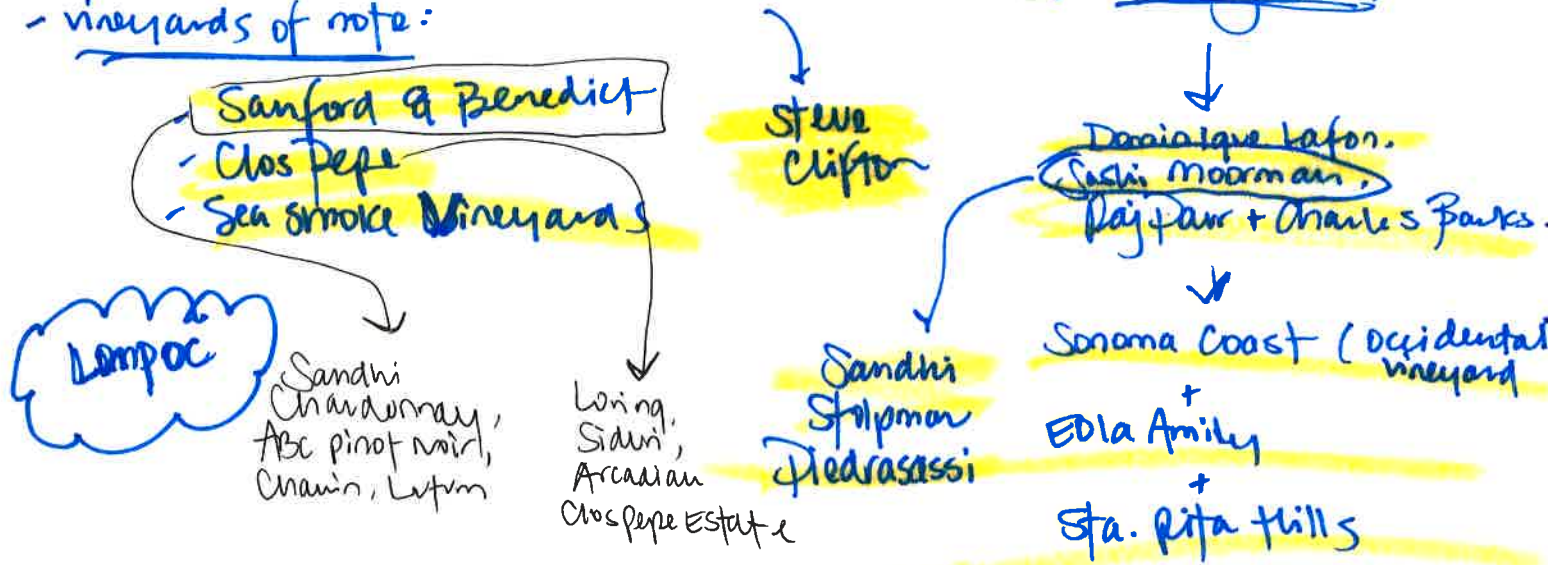 - vineyards of note:
- Sanford & Benedict
- Clos Pepe
- Sea Smoke Vineyards
Lompoc
Sandhi
Chardonnay,
ABC pinot noir,
Chanin, Lutum
Loring,
Siduri,
Arcadian
Clos Pepe Estate
Steve
Clifton
Dominique Lafon.
Sashi Moorman,
Raj Parr + Charles Banks.
Sandhi
Stolpman
Piedrasassi
Sonoma Coast (Occidental
vineyard
+
EOla Amity
+
Sta. Rita Hills